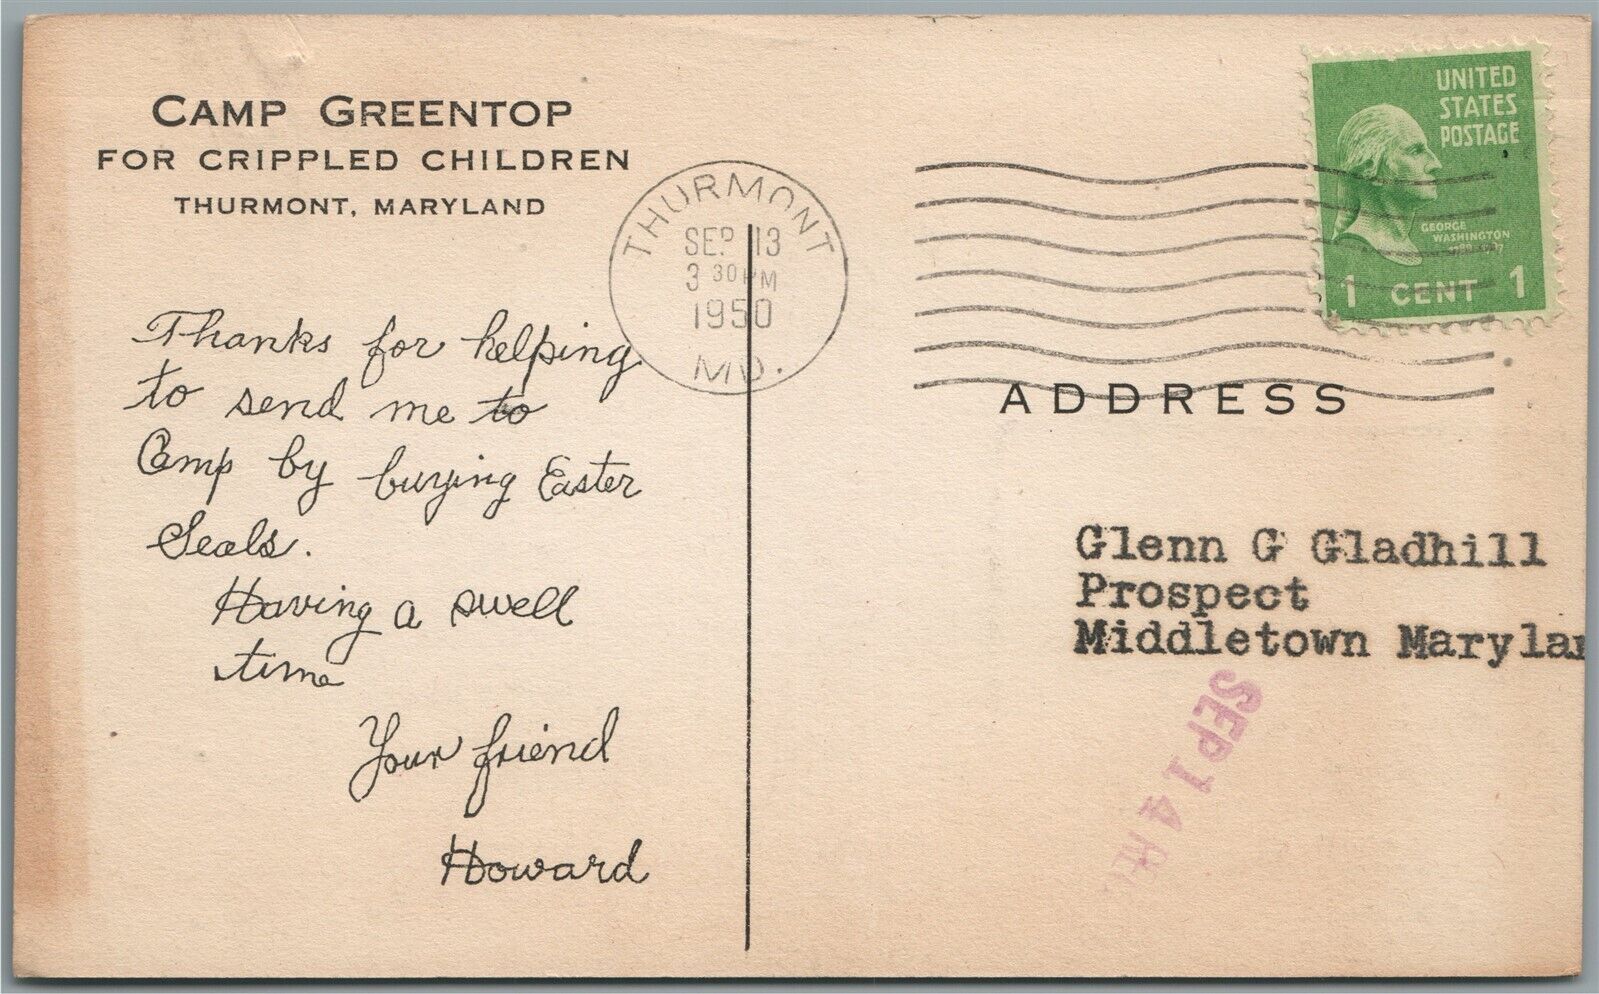 CAMP GREENTOP
FOR CRIPPLED CHILDREN
THURMONT, MARYLAND
Thanks for helping
to send me to
Camp by buying Easter
Seals.
Having a swell
time
Your friend
Howard
THURMONT
SEP 13
3 30 PM
1950
MD.
UNITED
STATES
POSTAGE
GEORGE
WASHINGTON
1 CENT 1
ADDRESS
Glenn G Gladhill
Prospect
Middletown Marylan
SEP 14